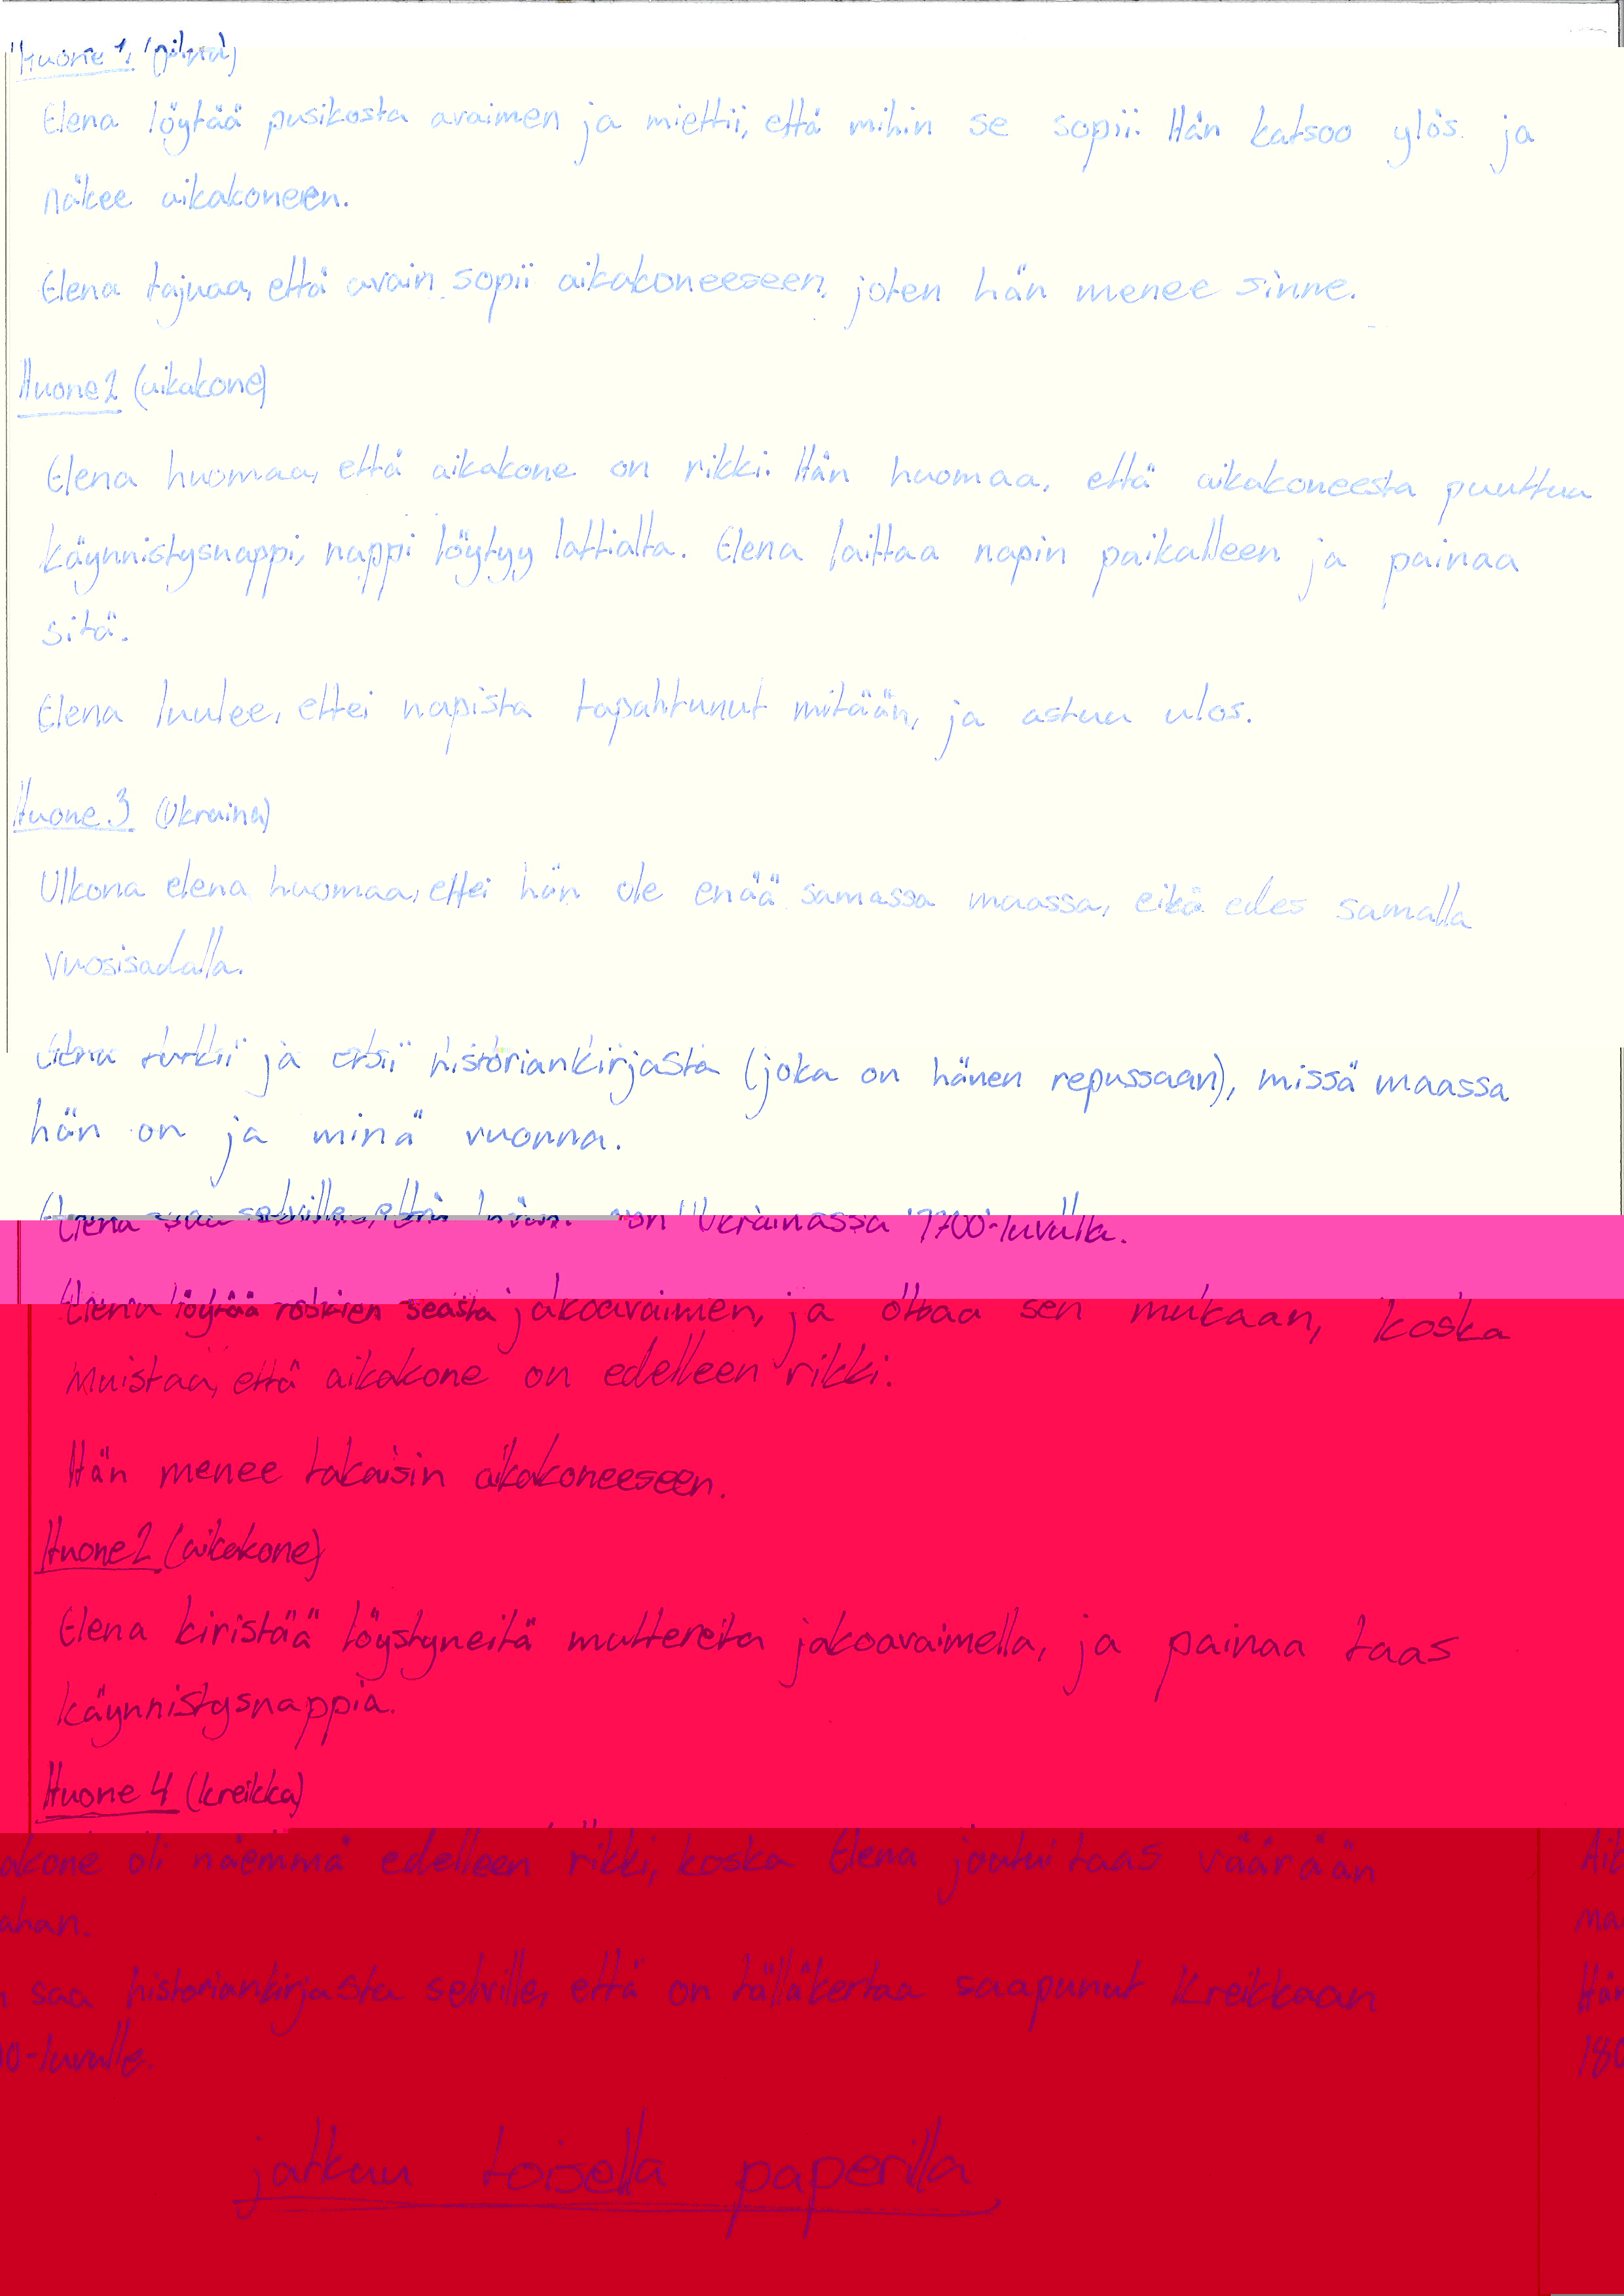 Huone 1. (piha)
Elena löytää pusikosta avaimen ja miettii, että mihin se sopii. Hän katsoo ylös ja
näkee aikakoneen.
Elena tajuaa, että avain sopii aikakoneeseen, joten hän menee sinne.
Huone 2 (aikakone)
Elena huomaa, että aikakone on rikki. Hän huomaa, että aikakoneesta puuttuu
käynnistysnappi, nappi löytyy lattialta. Elena laittaa napin paikalleen ja painaa
sitä.
Elena luulee, ettei napista tapahtunut mitään, ja astuu ulos.
Huone 3 (Ukraina)
Ulkona elena huomaa, ettei hän ole enää samassa maassa, eikä edes samalla
vuosisadalla.
Elena tutkii ja etsii historiankirjasta (joka on hänen repussaan), missä maassa
hän on ja minä vuonna.
Elena saa selville, että hän on Ukrainassa 1700-luvulla.
Elena löytää roskien seasta jakoavaimen, ja ottaa sen mukaan, koska
muistaa, että aikakone on edelleen rikki.
Hän menee takaisin aikakoneeseen.
Huone 2 (aikakone)
Elena kiristää löystyneitä muttereita jakoavaimella, ja painaa taas
käynnistysnappia.
Huone 4 (kreikka)
akone oli näemmä edelleen rikki, koska Elena joutui taas väärään Aik
ahan. ma
n saa historiankirjasta selville, että on tälläkertaa saapunut Kreikkaan Hän
00-luvulle. 180
jatkuu toisella paperilla